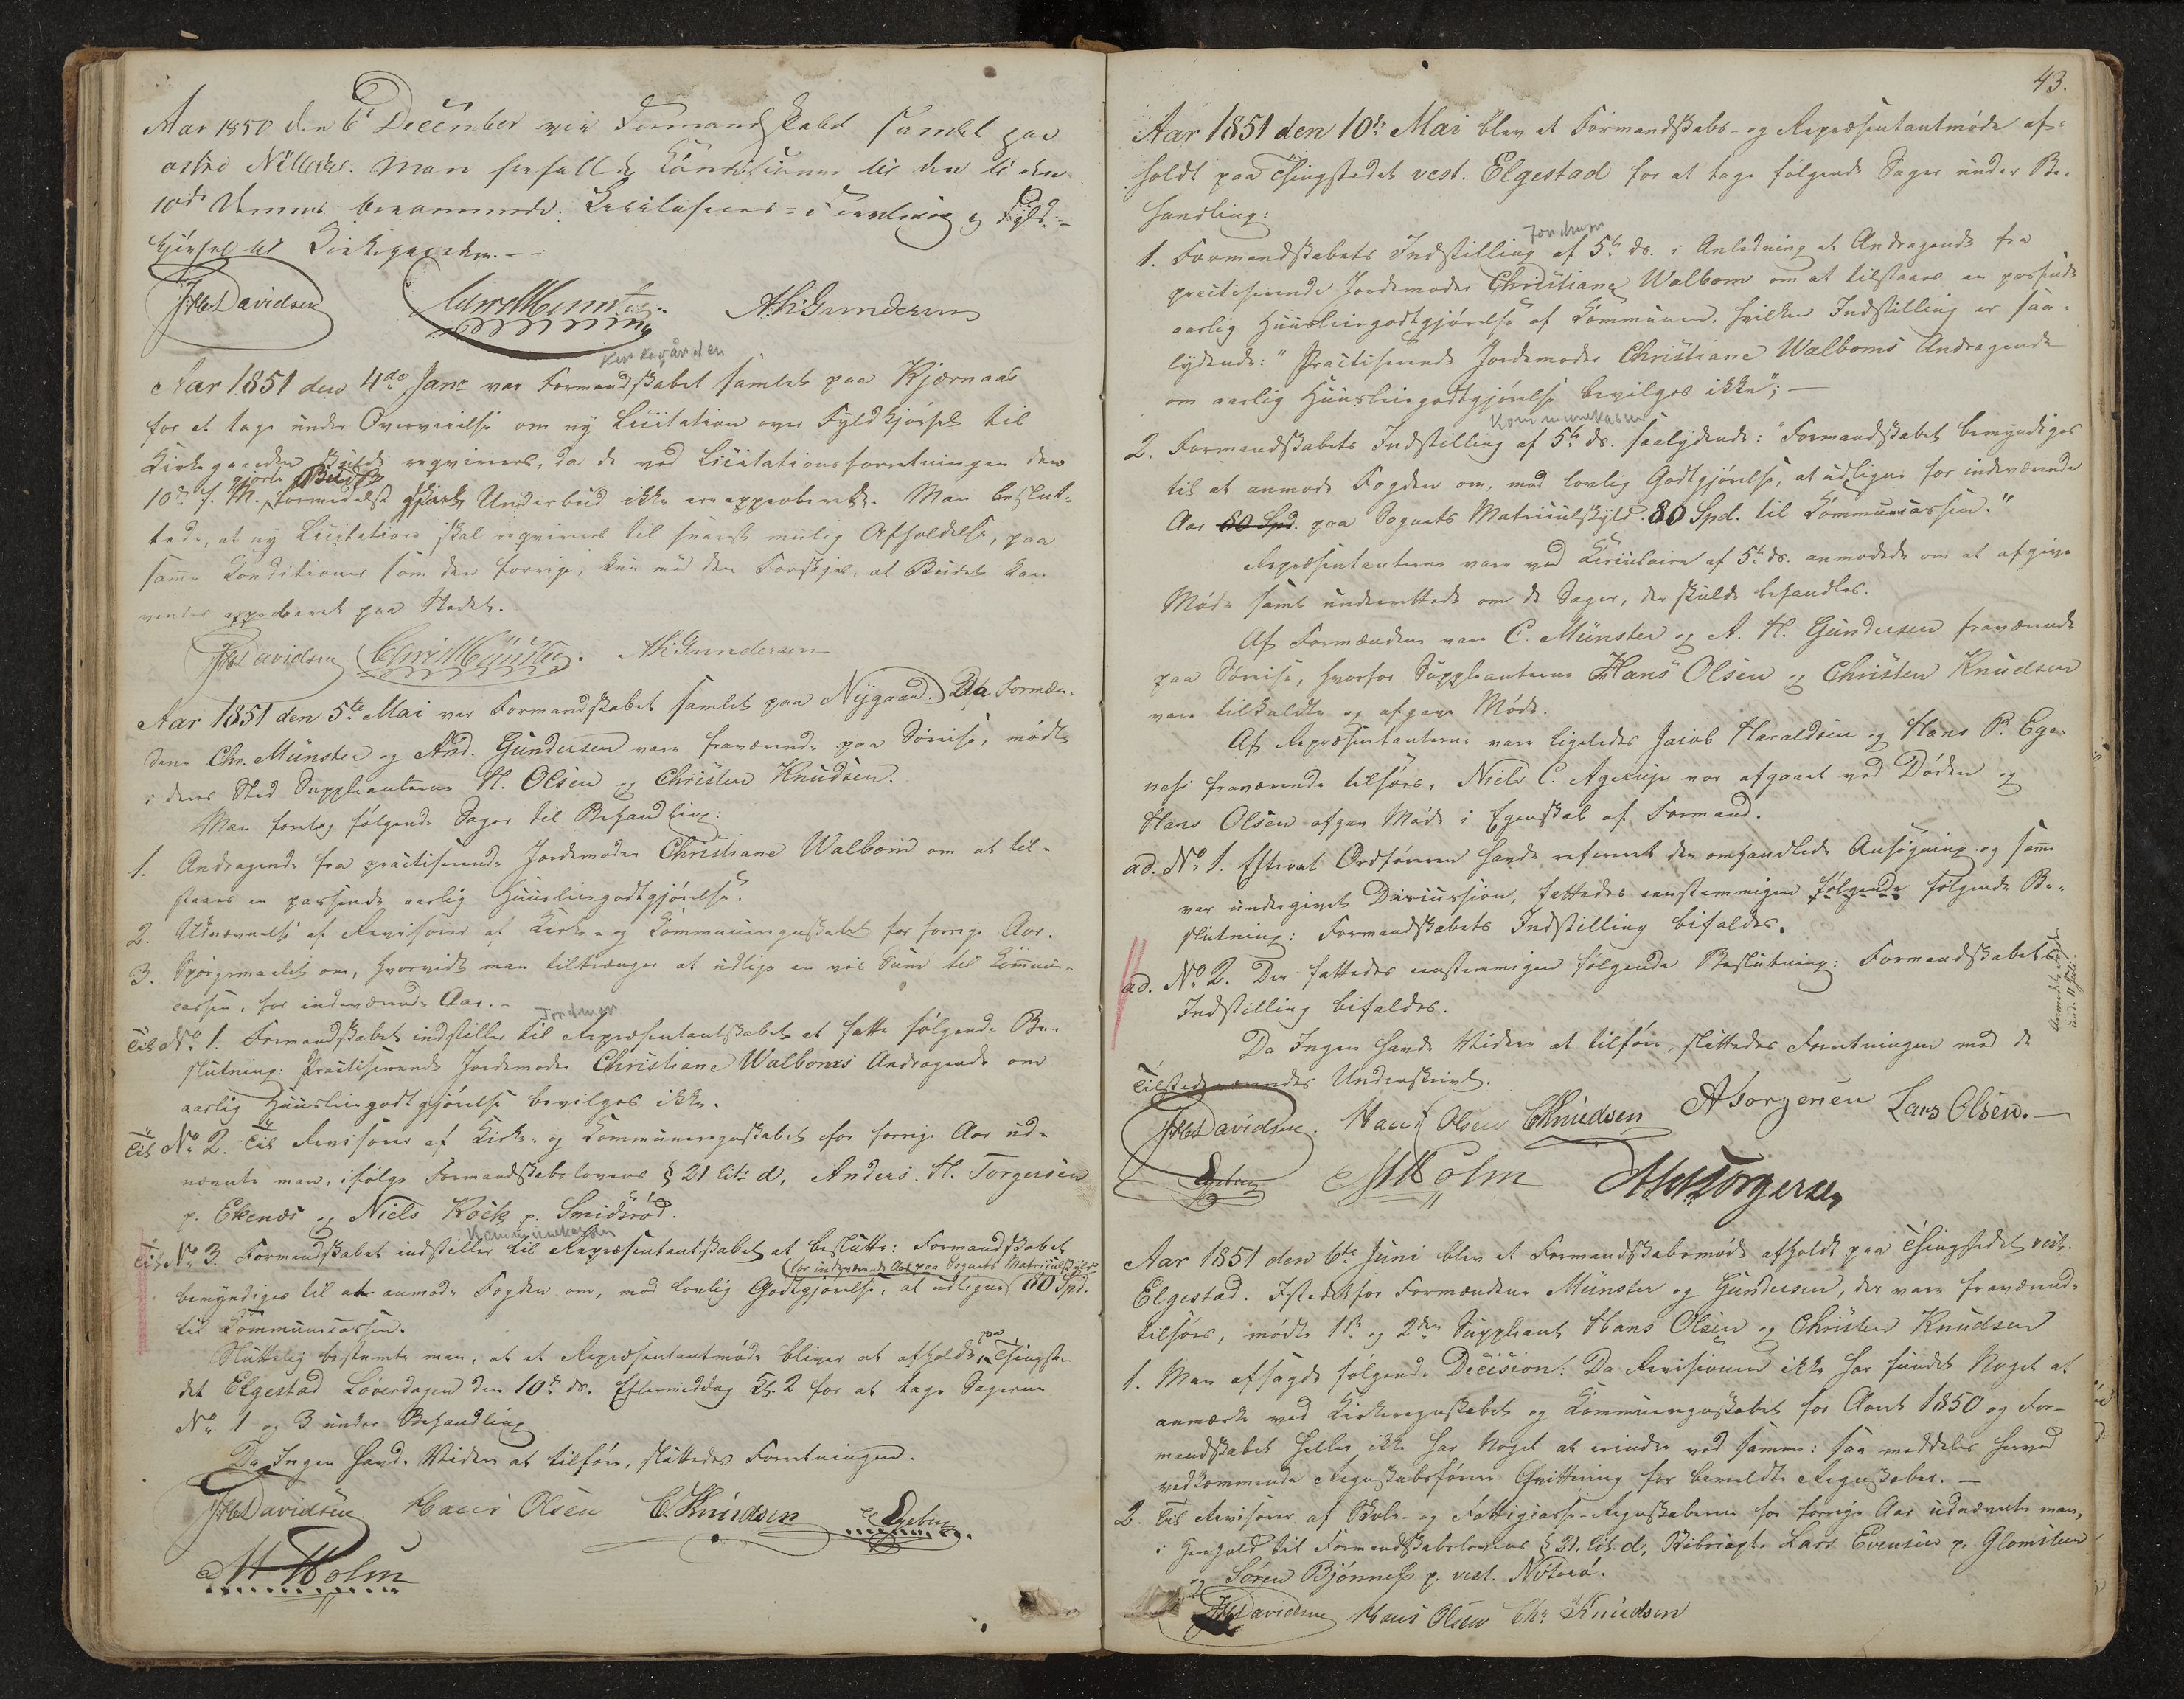 Aar 1850 den 6te December var Formandskabet samlet paa
østre Nøtterø. Man forfattede Conditioner til den til den
10de dennes berammede Licitations-Forretning over Fyld-
kjørsel til Kirkegaarden.
J. H. Davidsen Chr. Münster A. H. Gundersen
Kirkegården
Aar 1851 den 4de Janr var Formandskabet samlet paa Kjærnaas
for at tage under Overveielse om ny Licitation over Fyldkjørsel til
Kirkegaarden skulde reqvireres, da de ved Licitationsforretningen den
10de f. M. formedelst skeede Underbud ikke ere approberede. Man beslut-
gjorte Bud
tede, at ny Licitation skal reqvireres til snarest muelig Afholdelse, paa
samme Conditioner som den forrige, kun med den Forskjel, at Budet kan
ventes approberet paa Stedet.
J. H. Davidsen Chr. Münster. A. H. Gundersen
Aar 1851 den 5te Mai var Formandskabet samlet paa Nygaard. Da Formæn-
dene Chr. Münster og And. Gundersen vare fraværende paa Søreise, mødte
i deres Sted Suppleanterne H. Olsen og Christen Knudsen.
Man foretog følgende Sager til Behandling:
1. Andragende fra practiserende Jordemoder Christiane Walbom om at til-
staaes en passende aarlig Huusleiegodtgjørelse.
2. Udnævnelse af Revisorer af Kirke- og Communeregnskabet for forrige Aar.
3. Spørgsmaalet om, hvorvidt man tiltrænger at udligne en vis Sum til Commune-
cassen, for indeværende Aar.
Jordmor
Til No 1. Formandskabet indstiller til Repræsentantskabet at fatte følgende Be-
slutning: Practiserende Jordemoder Christiane Walboms Andragende om
aarlig Huusleiegodtgjørelse bevilges ikke.
Til No 2. Til Revisorer af Kirke- og Communeregnskabet for forrige Aar ud-
nævnte man, ifølge Formandskabslovens § 21 Litr. d, Anders H. Torgersen
p. Ekenæs og Niels Kock p. Smidsrød.
Kommunekassen
Til No 3. Formandskabet indstiller til Repræsentantskabet at beslutte: Formandskabet
for indeværende Aar paa Sognets Matriculskyld
bemyndiges til at anmode Fogden om, mod lovlig Godtgjørelse, at udligne 80 Spd.
til Communecassen.
Sluttelig bestemte man, at et Repræsentantmøde bliver at afholde paa Thingste-
det Elgestad Løverdagen den 10de ds. Eftermiddag Kl. 2 for at tage Sagerne
No 1 og 3 under Behandling
Da Ingen havde Videre at tilføre, sluttedes Forretningen.
J. H. Davidsen Hans Olsen C. Knudsen
M Holm
43.
Aar 1851 den 10de Mai blev et Formandskabs- og Repræsentantmøde af-
holdt paa Thingstedet vest. Elgestad for at tage følgende Sager under Be-
handling:
Jordmor
1. Formandskabets Indstilling af 5te ds. i Anledning et Andragende fra
practiserende Jordemoder Christiane Walbom om at tilstaaes en passende
aarlig Huusleiegodtgjørelse af Communen, hvilken Indstilling er saa-
lydende: "Practiserende Jordemoder Christiane Walboms Andragende
om aarlig Huusleiegodtgjørelse bevilges ikke";
Kommunekassen
2. Formandskabets Indstilling af 5te ds. saalydende: "Formandskabet bemyndiges
til at anmode Fogden om, mod lovlig Godtgjørelse, at udligne for indeværende
Aar 80 Spd. paa Sognets Matriculskyld 80 Spd. til Communecassen."
Repræsentanterne vare ved Circulaire af 5te ds. anmodede om at afgive
Møde samt underrettede om de Sager, der skulde behandles.
Af Formændene vare C. Münster og A. H. Gundersen fraværende
paa Søreise, hvorfor Suppleanterne Hans Olsen og Christen Knudsen
vare tilkaldte og afgave Møde.
Af Repræsentanterne vare ligeledes Jacob Haraldsen og Hans P. Ege-
næs fraværende tilsøes, Niels C. Agerup var afgaaet ved Døden og
Hans Olsen afgav Møde i Egenskab af Formand.
ad. No 1. Efterat Ordføreren havde refereret den omhandlede Ansøgning og samme
var undergivet Discussion, fattedes eenstemmigen følgende følgende Be-
slutning: Formandskabets Indstilling bifaldes.
ad. No 2. Der fattedes eenstemmigen følgende Beslutning: Formandskabets
Indstilling bifaldes.
Da Ingen havde Videre at tilføre, sluttedes Forretningen med de
Tilstedeværendes Underskrivt.
J. H. Davidsen. Hans Olsen C Knudsen A Torgersen Lars Olsen.
M Holm A. H. Torgersen
Aar 1851 den 6te Juni blev et Formandskabsmøde afholdt paa Thingstedet vest.
Elgestad. Istedetfor Formændene Münster og Gundersen, der vare fraværende
tilsøes, mødte 1ste og 2den Suppleant Hans Olsen og Christen Knudsen
1. Man afsagde følgende Decision: Da Revisorerne ikke har fundet Noget at
anmærke ved Kirkeregnskabet og Communeregnskabet for Aaret 1850 og For-
mandskabet heller ikke har Noget at erindre ved samme: saa meddeles herved
vedkommende Regnskabsfører Qvittering for bemeldte Regnskaber.
2. Til Revisorer af Skole- og Fattigcasse-Regnskaberne for forrige Aar udnævnte man,
i Henhold til Formandskabslovens § 21, Lit. d, Lars Evensen p. Glomsten
og Søren Bjønness p. vest. Nøterø.
J. H. Davidsen Hans Olsen Chr Knudsen